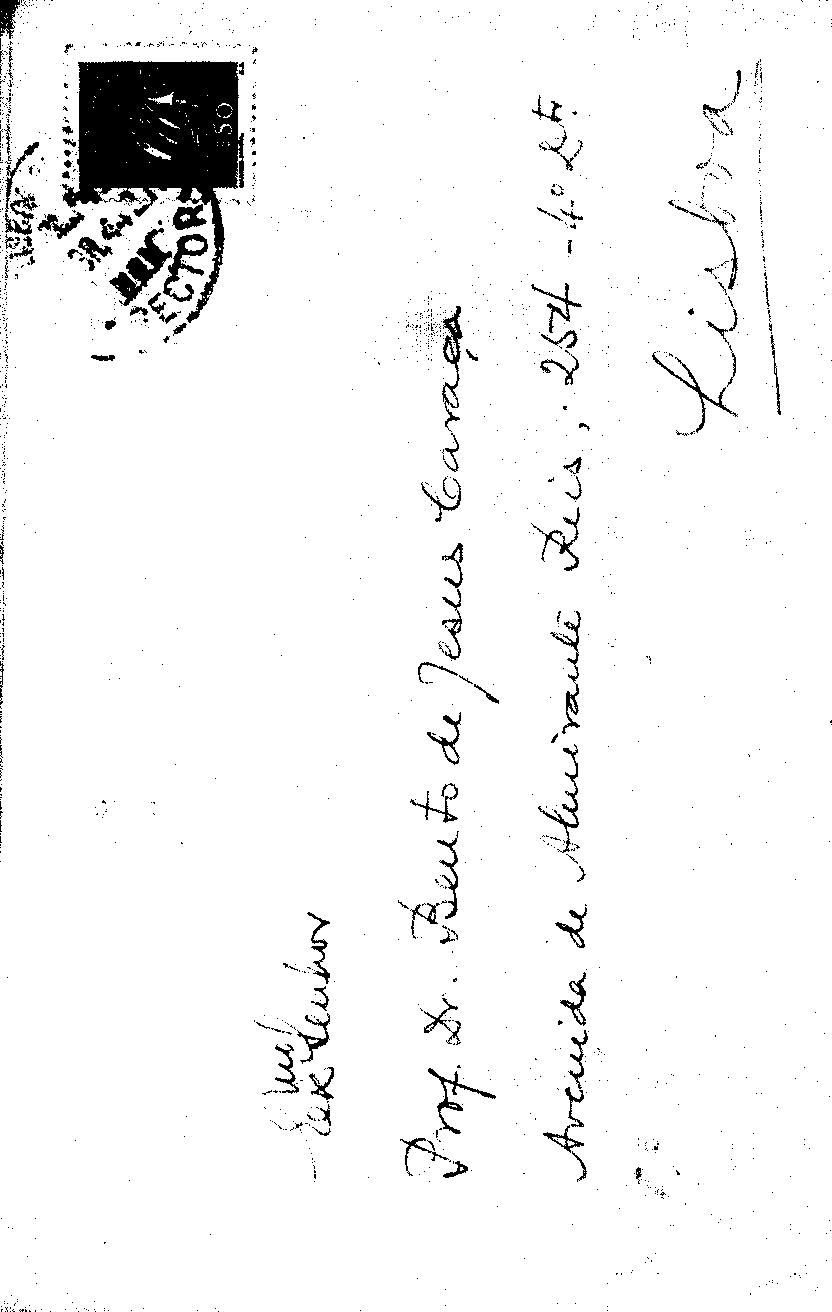 $50
SECTOR
Exmº Senhor
Prof. Dr. Bento de Jesus Caraça
Avenida de Almirante Reis, 254-4º Dt.
Lisboa